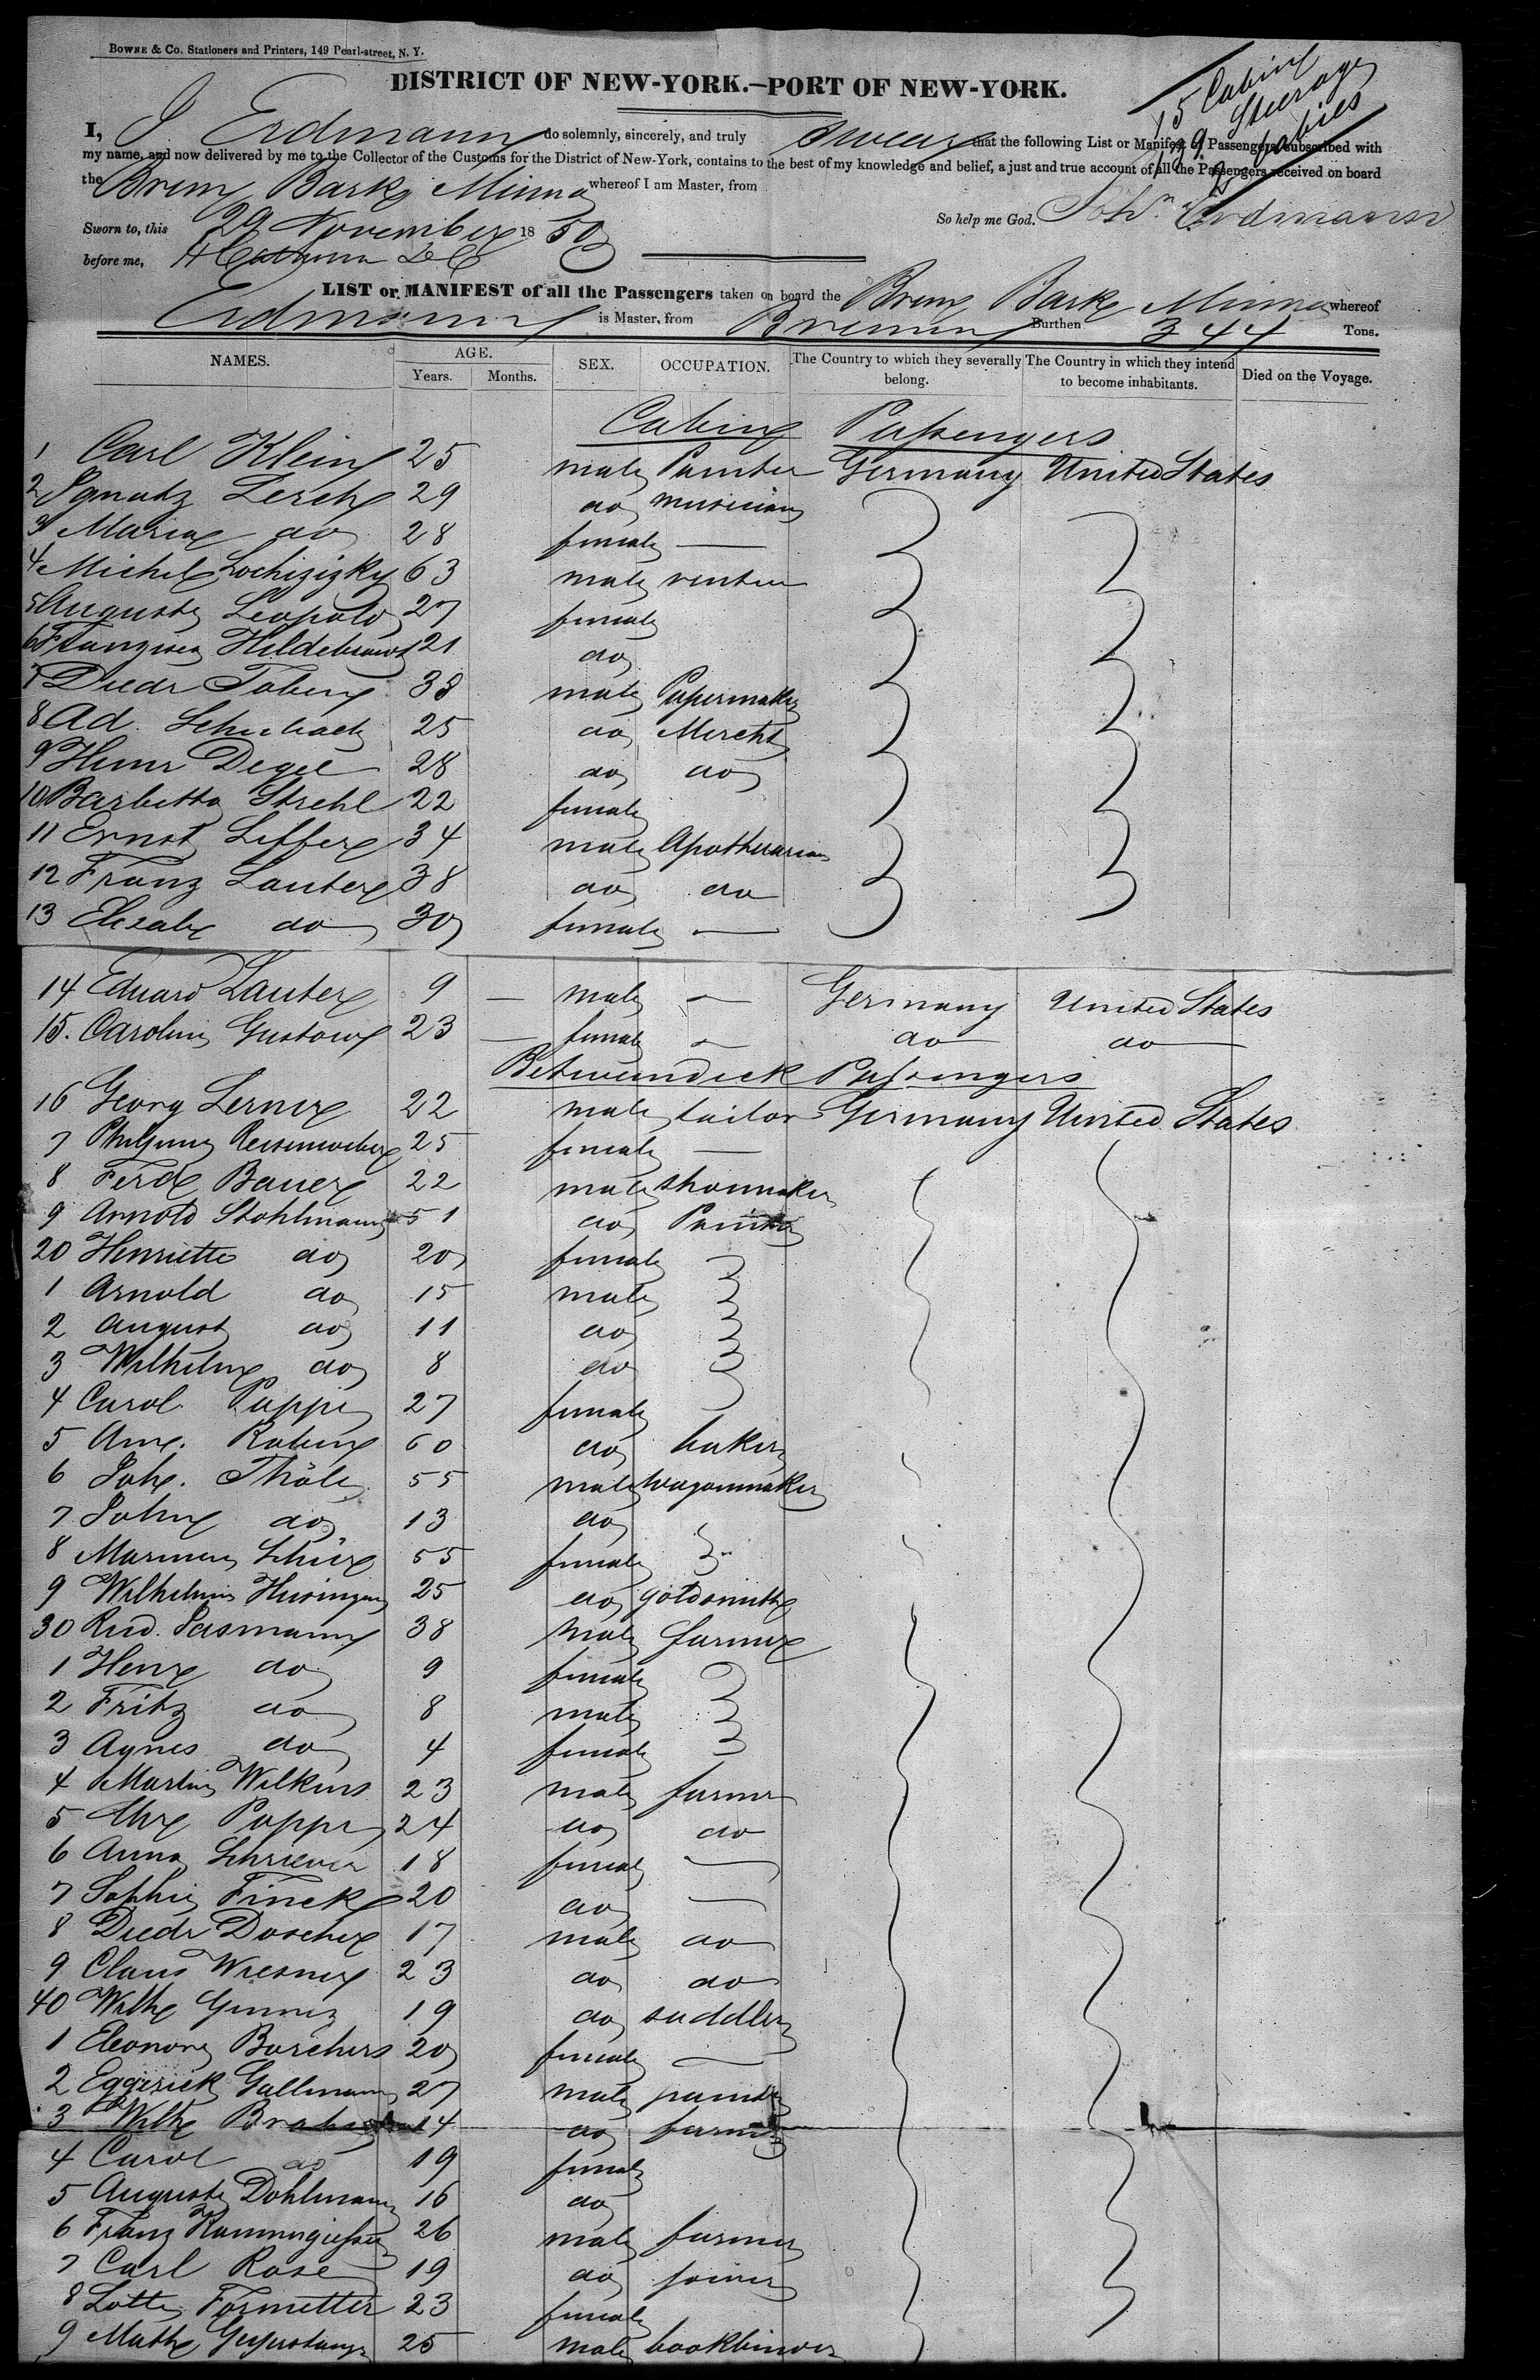 BOWNE & Co. Stationers and Printers, 149 Pearl-street, N. Y.
DISTRICT OF NEW-YORK.—PORT OF NEW-YORK.
15 Cabin
Steerage
babies
I, J Erdmann do solemnly, sincerely, and truly swear that the following List or Manifest of Passengers, subscribed with
my name, and now delivered by me to the Collector of the Customs for the District of New-York, contains to the best of my knowledge and belief, a just and true account of all the Passengers received on board
the Brem Bark Minna whereof I am Master, from
So help me God. Joh. Erdmann
Sworn to, this 29 November 1850
before me,
LIST or MANIFEST of all the Passengers taken on board the Brem Bark Minna whereof
Erdmann is Master, from Bremen Burthen 344 Tons.
NAMES. AGE. SEX. OCCUPATION. The Country to which they severally belong. The Country in which they intend to become inhabitants. Died on the Voyage.
Years. Months.
Cabin Passengers
1 Carl Klein 25 male Painter Germany United States
2 Ignatz Lerch 29 do musician
3 Maria do 28 female —
4 Michel 63 male rentier
5 Auguste Leopold 27 female
6 Hildebrand 21 do
7 Diedr Tobing 38 male Papermaker
8 Ad. Schuback 25 do Mercht
9 Heinr Degel 28 do do
10 Barbetta Strehl 22 female
11 Ernst 34 male
12 Franz Lauter 38 do do
13 Elisabe do 30 female —
14 Eduard Lauter 9 — male — Germany United States
15. Carolin Gustow 23 — female — do do
Betweendeck Passengers
16 Georg Lerner 22 male tailor Germany United States
7 25 female —
8 Ferd Bauer 22 male shoemaker
9 Arnold Stohlmann 51 do
20 Henriette do 20 female
1 Arnold do 15 male
2 August do 11 do
3 Wilhelm do 8 do
4 Carol. Poppe 27 female
5 60 do baker
6 Joh. Thöle 55 male wagonmaker
7 John do 13 do
8 55 female
9 25 do goldsmith
30 Rud. 38 male farmer
1 Henr do 9 female
2 Fritz do 8 male
3 Agnes do 4 female
4 Martin Wilkens 23 male farmer
5 Poppe 24 do do
6 Anna Schriever 18 female —
7 Sophie Finck 20 do —
8 Diedr Doscher 17 male do
9 Claus Wiesner 23 do do
40 Wilh 19 do saddler
1 Eleonore Borchers 20 female —
2 Gallmann 27 male painter
3 Wilh 14 do farmer
4 Carol do 19 female
5 Auguste Dohlmann 16 do
6 Franz 26 male farmer
7 Carl Rose 19 do joiner
8 Lotte Formetter 23 female
9 Math 25 male bookbinder